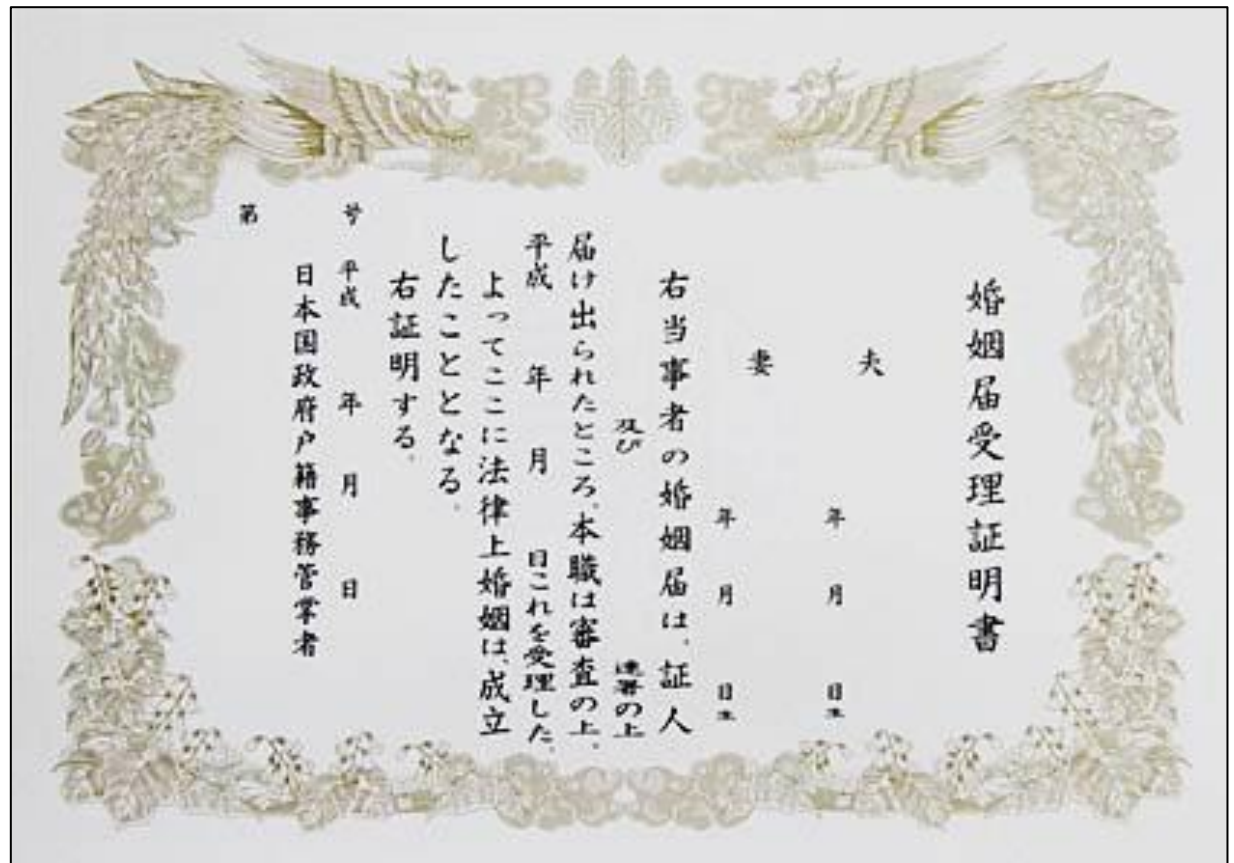 婚姻届受理証明書
夫
年 月 日生
妻
年 月 日生
右当事者の婚姻届は、証人
及び 連署の上
届け出られたところ、本職は審査の上、
平成 年 月 日これを受理した、
よってここに法律上婚姻は、成立
したこととなる。
右証明する。
第 号
平成 年 月 日
日本国政府戸籍事務管掌者